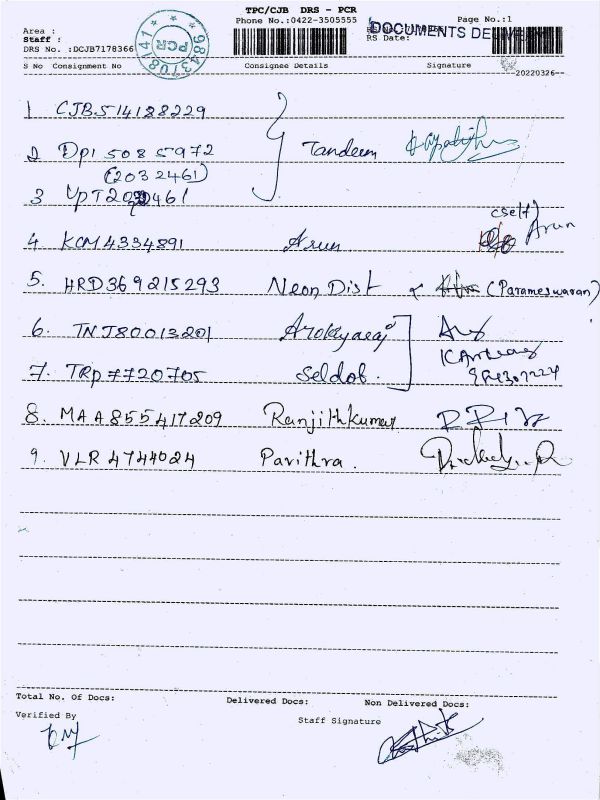 TPC/CJB DRS - PCR
Area : Phone No.:0422-3505555 Page No.:1
Staff : DOCUMENTS
DRS No. :DCJB7178366 RS Date:
PCR
S No Consignment No Consignee Details Signature
20220326
1 CJB514188229
2 DPI 5085972 Tandem
(2032461)
3 461
(self)
4. KCM4334891 Arun Arun
5. HRD369215293 Neon Dist (Parameswaran)
6. TNJ80013201 Arokyaraj
7. TRP7720705 Seldob.
8. MAA855417209 Ranjithkumar
9. VLR4744024 Pavithra.
Total No. Of Docs: Delivered Docs: Non Delivered Docs:
Verified By Staff Signature